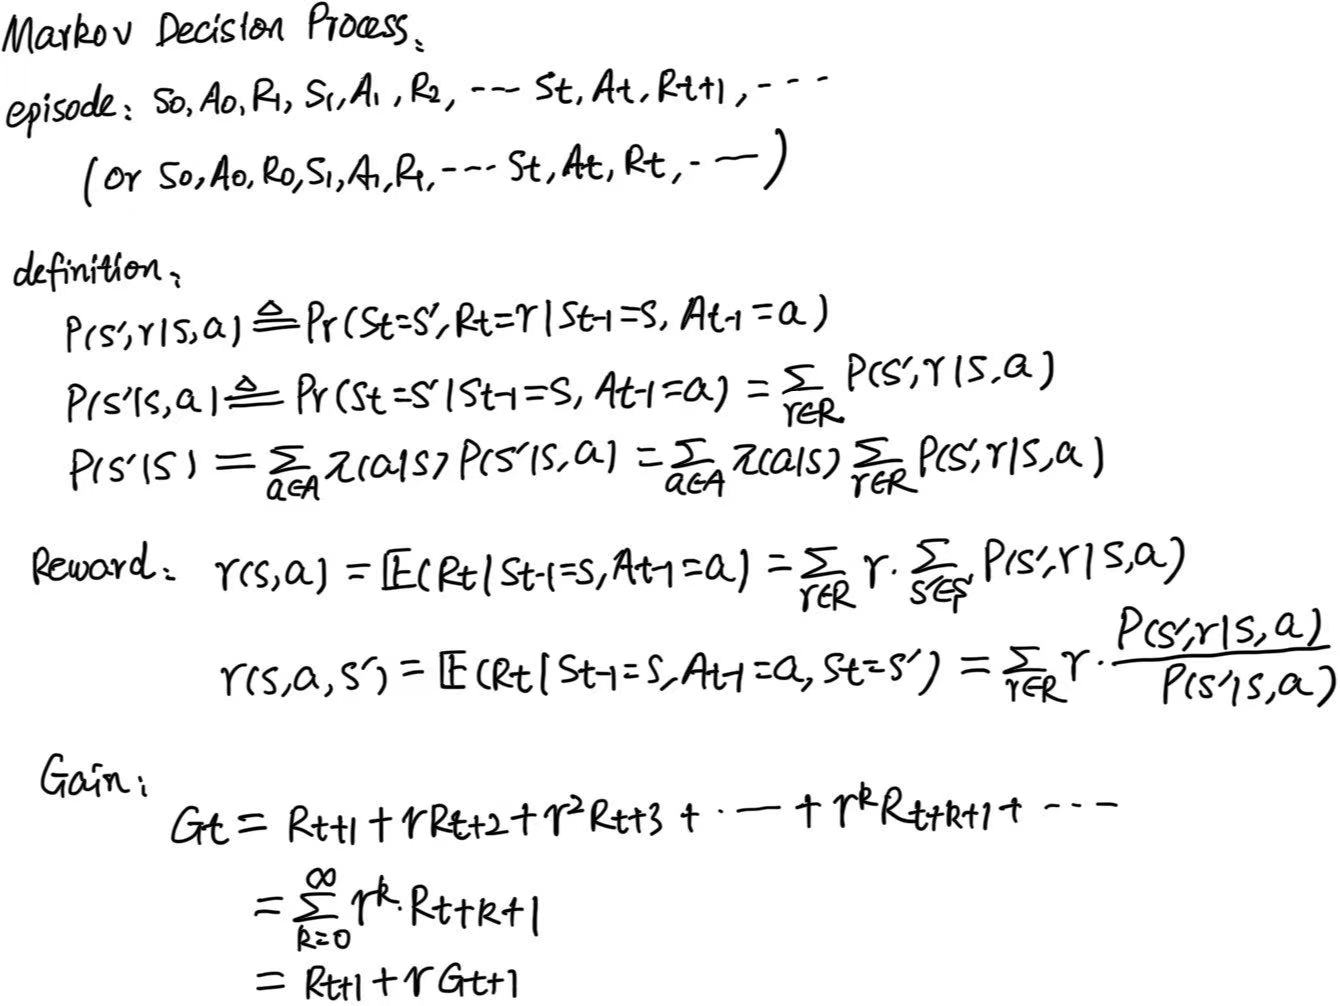 Markov Decision Process:
episode: S0, A0, R1, S1, A1, R2, ... St, At, Rt+1, ...
(or S0, A0, R0, S1, A1, R1, ... St, At, Rt, ...)
definition:
P(s',r|s,a) ≜ Pr(St=s', Rt=r | St-1=s, At-1=a)
P(s'|s,a) ≜ Pr(St=s' | St-1=s, At-1=a) = Σ_{r∈R} P(s',r|s,a)
P(s'|s) = Σ_{a∈A} π(a|s) P(s'|s,a) = Σ_{a∈A} π(a|s) Σ_{r∈R} P(s',r|s,a)
Reward: r(s,a) = 𝔼(Rt | St-1=s, At-1=a) = Σ_{r∈R} r · Σ_{s'∈S} P(s',r|s,a)
r(s,a,s') = 𝔼(Rt | St-1=s, At-1=a, St=s') = Σ_{r∈R} r · P(s',r|s,a) / P(s'|s,a)
Gain:
Gt = Rt+1 + γRt+2 + γ²Rt+3 + ... + γ^k Rt+k+1 + ...
= Σ_{k=0}^{∞} γ^k · Rt+k+1
= Rt+1 + γGt+1